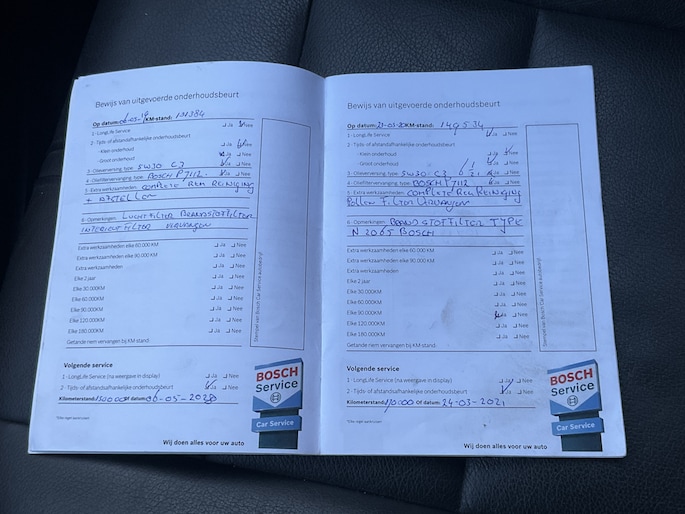 Bewijs van uitgevoerde onderhoudsbeurt
Op datum: KM-stand:
1 - LongLife Service Ja Nee
2 - Tijds- of afstandsafhankelijke onderhoudsbeurt
- Klein onderhoud Ja Nee
- Groot onderhoud Ja Nee
3 - Olieverversing, type: 5W30 C3 Ja Nee
4 - Oliefiltervervanging, type: BOSCH P7112 Ja Nee
5 - Extra werkzaamheden: COMPLETE REM REINIGING
+
6 - Opmerkingen: LUCHTFILTER BRANDSTOFFILTER
INTERIEURFILTER VERVANGEN
Extra werkzaamheden elke 60.000 KM Ja Nee
Extra werkzaamheden elke 90.000 KM Ja Nee
Extra werkzaamheden Ja Nee
Elke 2 jaar Ja Nee
Elke 30.000KM Ja Nee
Elke 60.000KM Ja Nee
Elke 90.000KM Ja Nee
Elke 120.000KM Ja Nee
Elke 180.000KM Ja Nee
Getande riem vervangen bij KM stand:
Stempel van Bosch Car Service autobedrijf
Volgende service
1 - LongLife Service (na weergave in display) Ja Nee
2 - Tijds- of afstandsafhankelijke onderhoudsbeurt Ja Nee
Kilometerstand: of datum:
BOSCH
Service
Car Service
Wij doen alles voor uw auto
Bewijs van uitgevoerde onderhoudsbeurt
Op datum: KM-stand: 149534
1 - LongLife Service Ja Nee
2 - Tijds- of afstandsafhankelijke onderhoudsbeurt
- Klein onderhoud Ja Nee
- Groot onderhoud Ja Nee
3 - Olieverversing, type: 5W30 C3 Ja Nee
4 - Oliefiltervervanging, type: BOSCH P7112 Ja Nee
5 - Extra werkzaamheden: COMPLETE REM REINIGING
Pollen FILTER VERVANGEN
6 - Opmerkingen: BRANDSTOFFILTER TYPE
N2065 BOSCH
Extra werkzaamheden elke 60.000 KM Ja Nee
Extra werkzaamheden elke 90.000 KM Ja Nee
Extra werkzaamheden Ja Nee
Elke 2 jaar Ja Nee
Elke 30.000KM Ja Nee
Elke 60.000KM Ja Nee
Elke 90.000KM Ja Nee
Elke 120.000KM Ja Nee
Elke 180.000KM Ja Nee
Getande riem vervangen bij KM stand:
Stempel van Bosch Car Service autobedrijf
Volgende service
1 - LongLife Service (na weergave in display) Ja Nee
2 - Tijds- of afstandsafhankelijke onderhoudsbeurt Ja Nee
Kilometerstand: of datum: 24-03-2021
BOSCH
Service
Car Service
Wij doen alles voor uw auto